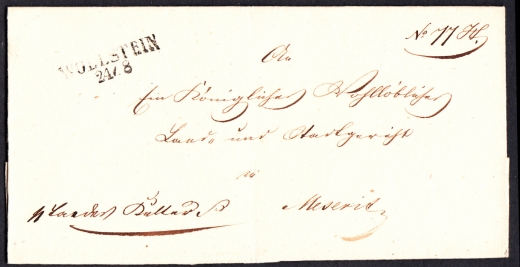 WOLLSTEIN
24/8
No 77
An
Ein Königliches Wohllöbliches
Land- und Stadtgericht
zu
Meseritz